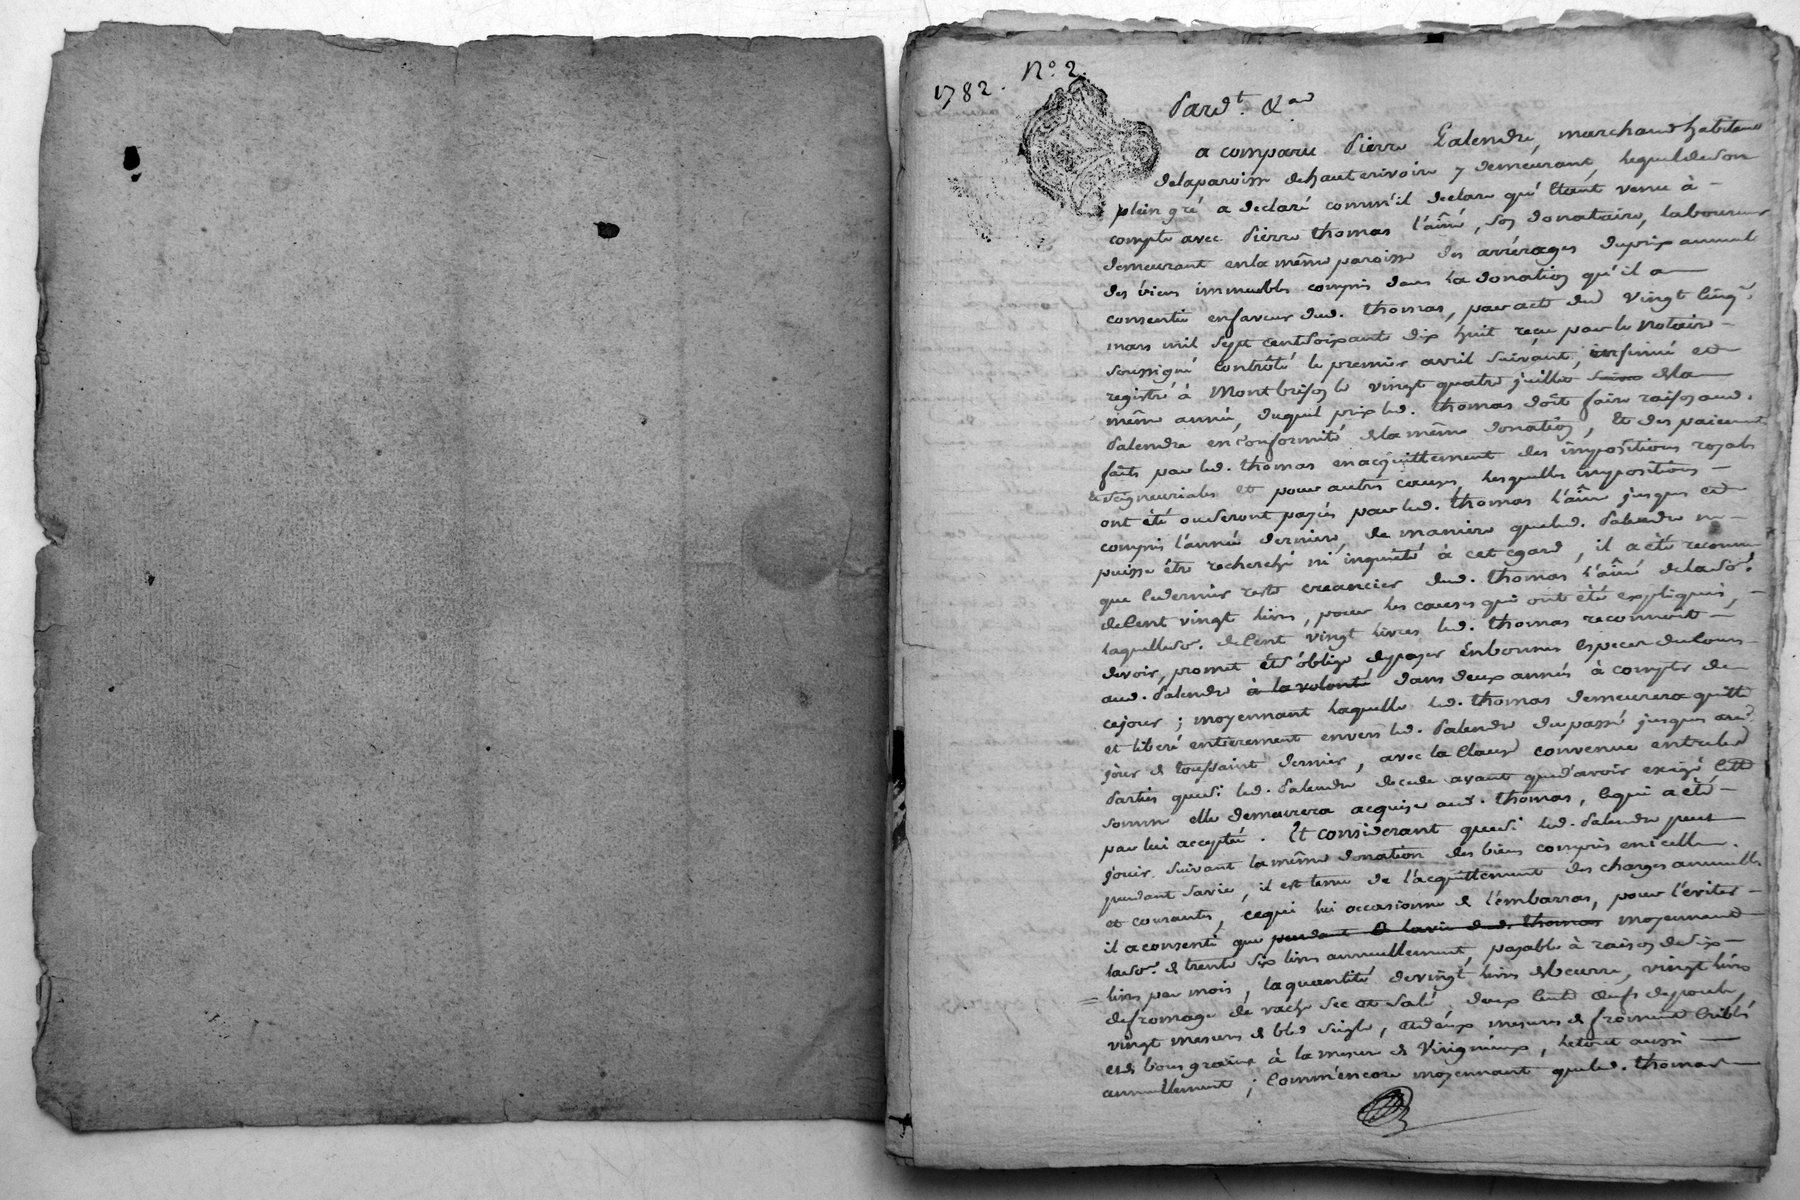 1782. N.º 2.
Pard.t &.a
a comparu Pierre Palendre, marchand habitant
dela paroisse de hauterivoire y demeurant, lequel de son
plein gré a declaré comm'il declare qu'étant venu à
compte avec Pierre thomas l'aîné, son donataire, laboureur
demeurant en la même paroisse des arrérages du prix annuel
des biens immeubles compris dans la donation qu'il a
consentie en faveur dud. thomas, par acte du vingt cinq
mars mil sept cent soixante dix huit reçu par le notaire
soussigné contrôlé le premier avril suivant, insinué et
registré à Montbrison le vingt quatre juillet dela
même année, duquel prix led. thomas doit faire raison aud.
Palendre en conformité dela même donation, et des paiements
faits par led. thomas en acquittement des impositions royales
& seigneuriales et pour autres causes, lesquelles impositions
ont été ou seront payées par led. thomas l'aîné jusques et
compris l'année derniere, de maniere que led. Palendre ne
puisse être recherché ni inquiété à cet egard, il a été reconnu
que ledernier reste creancier dud. thomas l'aîné de la so.e
de cent vingt livres, pour les causes qui ont été expliquées,
laquelle so. de cent vingt livres led. thomas reconnoit
devoir, promet et s'oblige de payer en bonnes especes du cours
aud. Palendre à la volonté dans deux années à compter de
ce jour; moyennant laquelle led. thomas demeurera quitte
et libéré entierement envers led. Palendre du passé jusques au
jour de toussaint dernier, avec la clause convenue entre les
Parties que si led. Palendre decede avant que d'avoir exigé cette
somme elle demeurera acquise aud. thomas, ce qui a été
par lui accepté. Et considerant que si led. Palendre peut
jouir suivant la même donation des biens compris en icelle
pendant sa vie, il est tenu de l'acquittement des charges annuelles
et courantes, ce qui lui occasionne de l'embarras, pour l'eviter
il a consenti que pendant la vie dud. thomas moyennant
la so.e de trente six livres annuellement, payable à raison de six
livres par mois, la quantité de vingt livres de beurre, vingt livres
de fromage de vache sec et salé, deux cents œufs de poule,
vingt mesures de bled seigle, et deux mesures de froment criblé
et de bons grains à la mesure de Virigneux, le tout aussi
annuellement; comm'encore moyennant que led. thomas